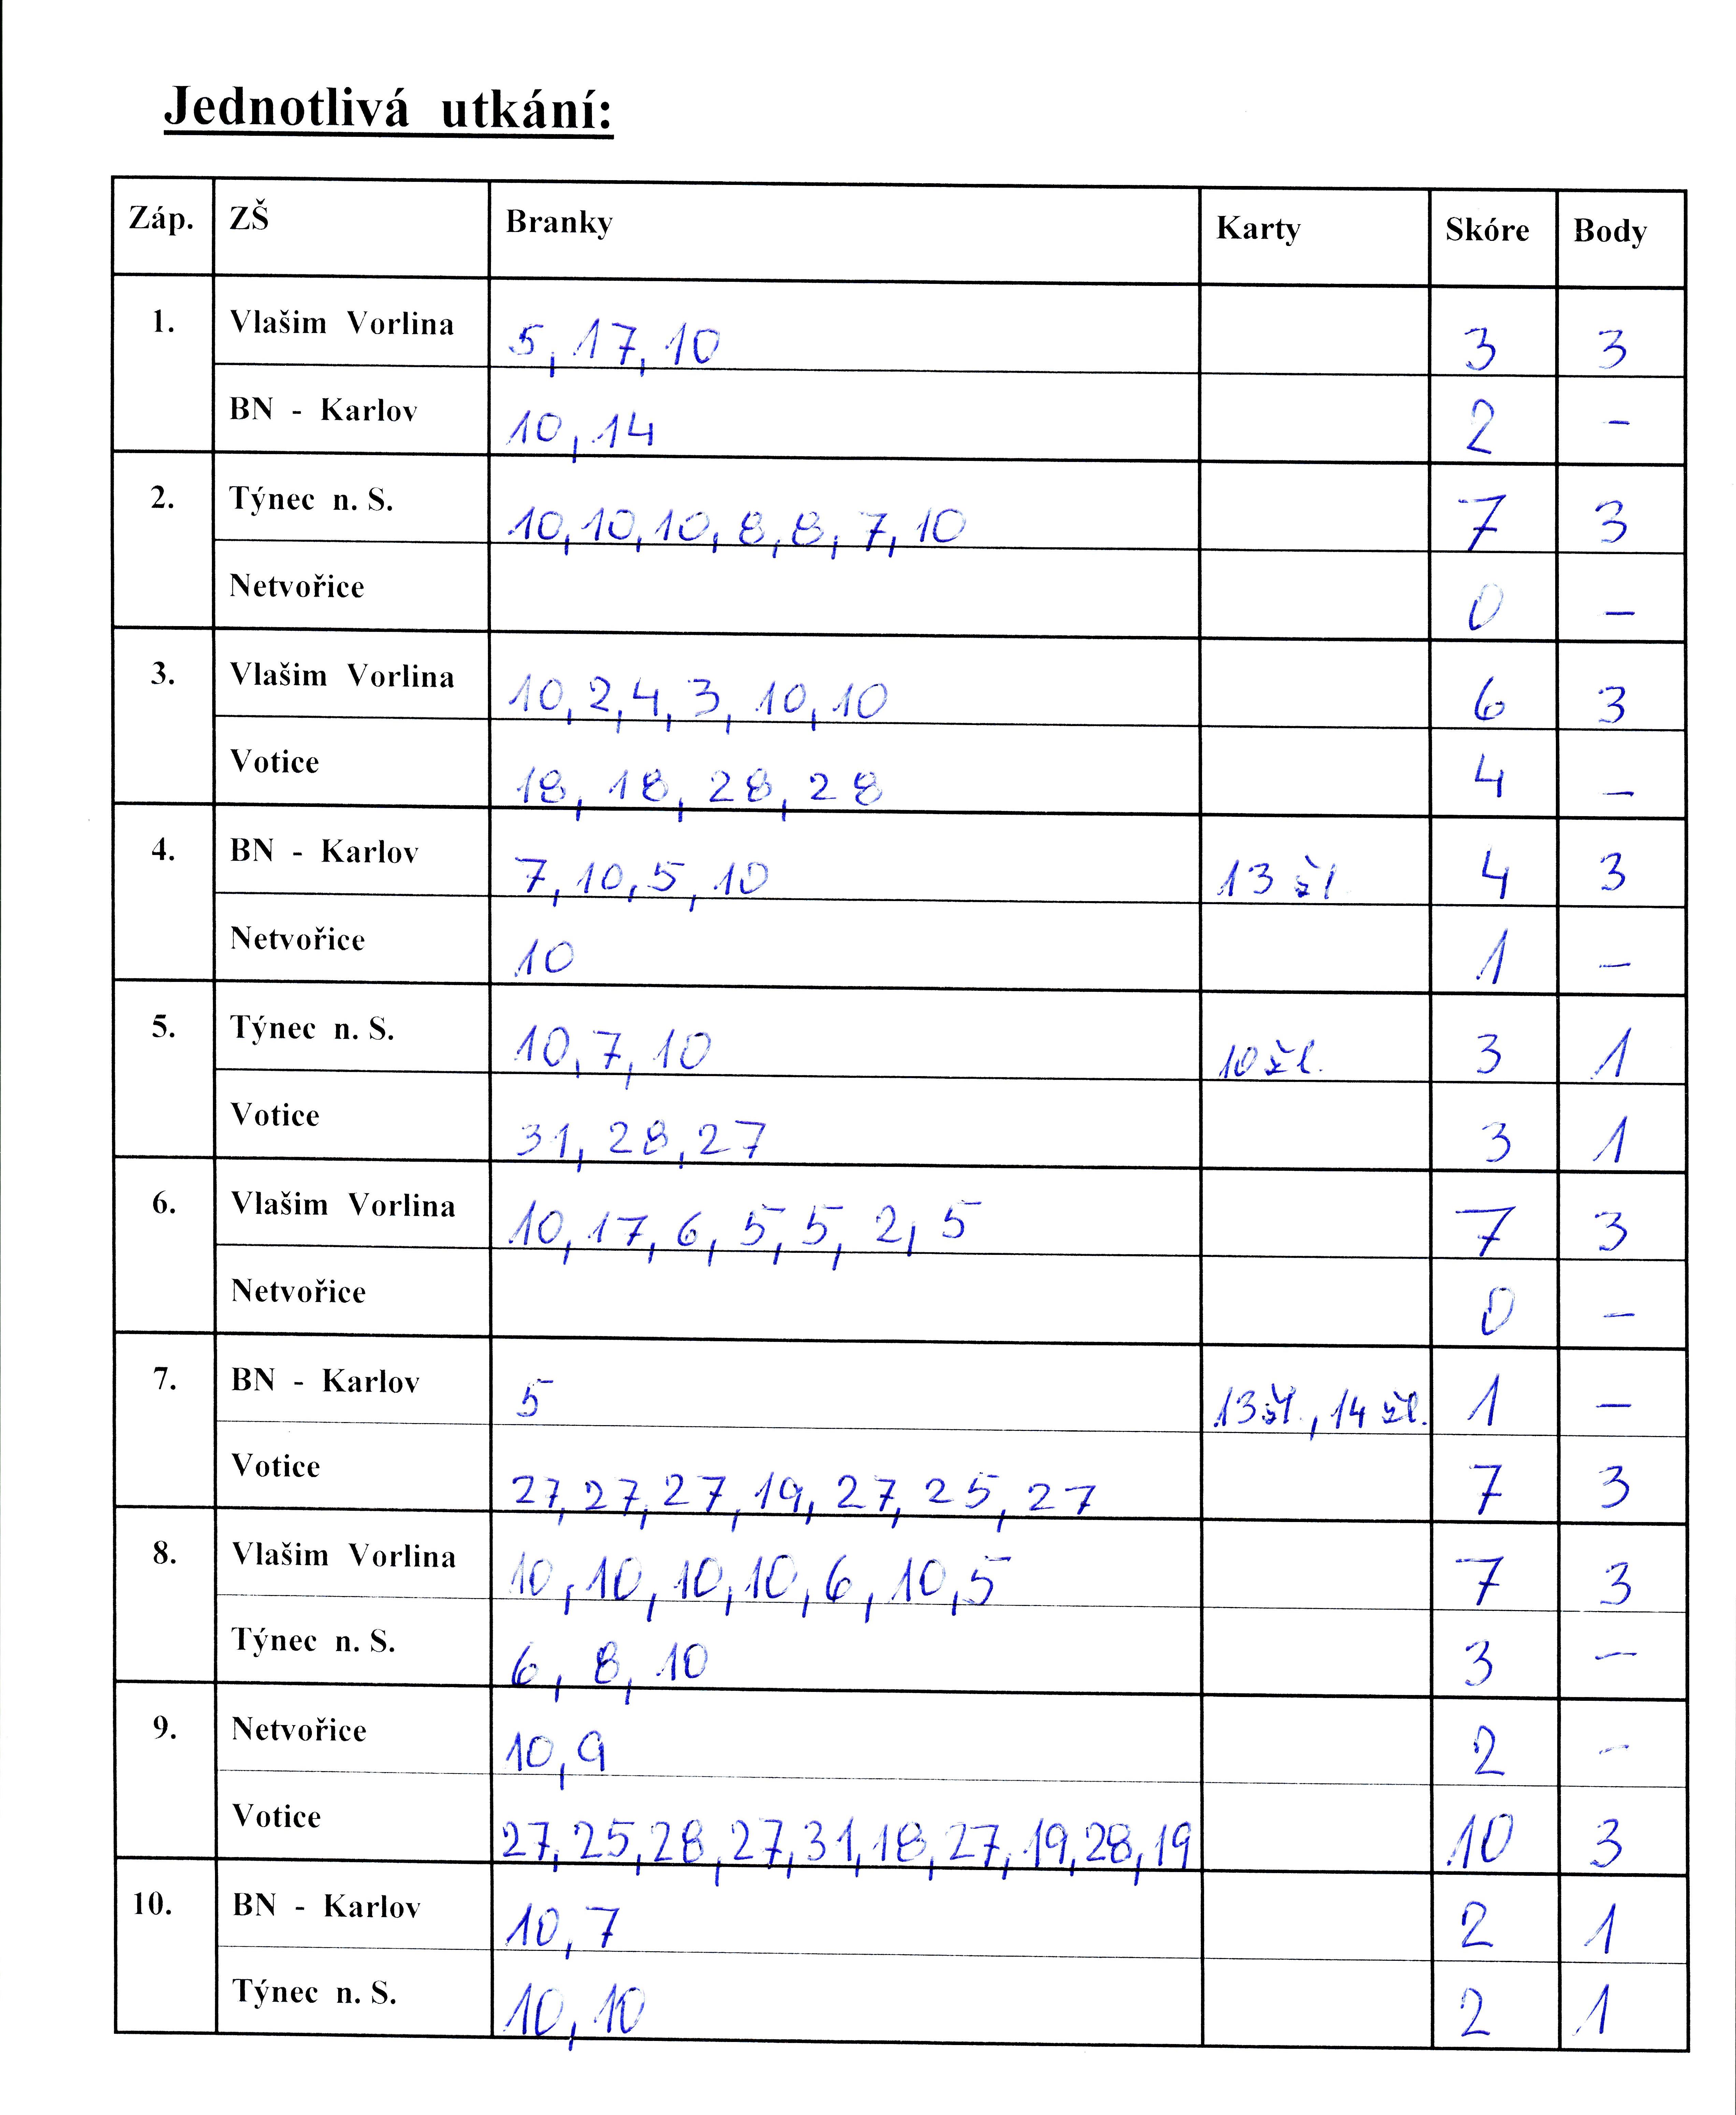 Jednotlivá utkání:
Záp. ZŠ Branky Karty Skóre Body
1. Vlašim Vorlina 5, 17, 10 3 3
BN - Karlov 10, 14 2 -
2. Týnec n. S. 10, 10, 10, 8, 8, 7, 10 7 3
Netvořice 0 -
3. Vlašim Vorlina 10, 2, 4, 3, 10, 10 6 3
Votice 18, 18, 28, 28 4 -
4. BN - Karlov 7, 10, 5, 10 13 žl. 4 3
Netvořice 10 1 -
5. Týnec n. S. 10, 7, 10 10 žl. 3 1
Votice 31, 28, 27 3 1
6. Vlašim Vorlina 10, 17, 6, 5, 5, 2, 5 7 3
Netvořice 0 -
7. BN - Karlov 5 13 žl., 14 žl. 1 -
Votice 27, 27, 27, 19, 27, 25, 27 7 3
8. Vlašim Vorlina 10, 10, 10, 10, 6, 10, 5 7 3
Týnec n. S. 6, 8, 10 3 -
9. Netvořice 10, 9 2 -
Votice 27, 25, 28, 27, 31, 18, 27, 19, 28, 19 10 3
10. BN - Karlov 10, 7 2 1
Týnec n. S. 10, 10 2 1